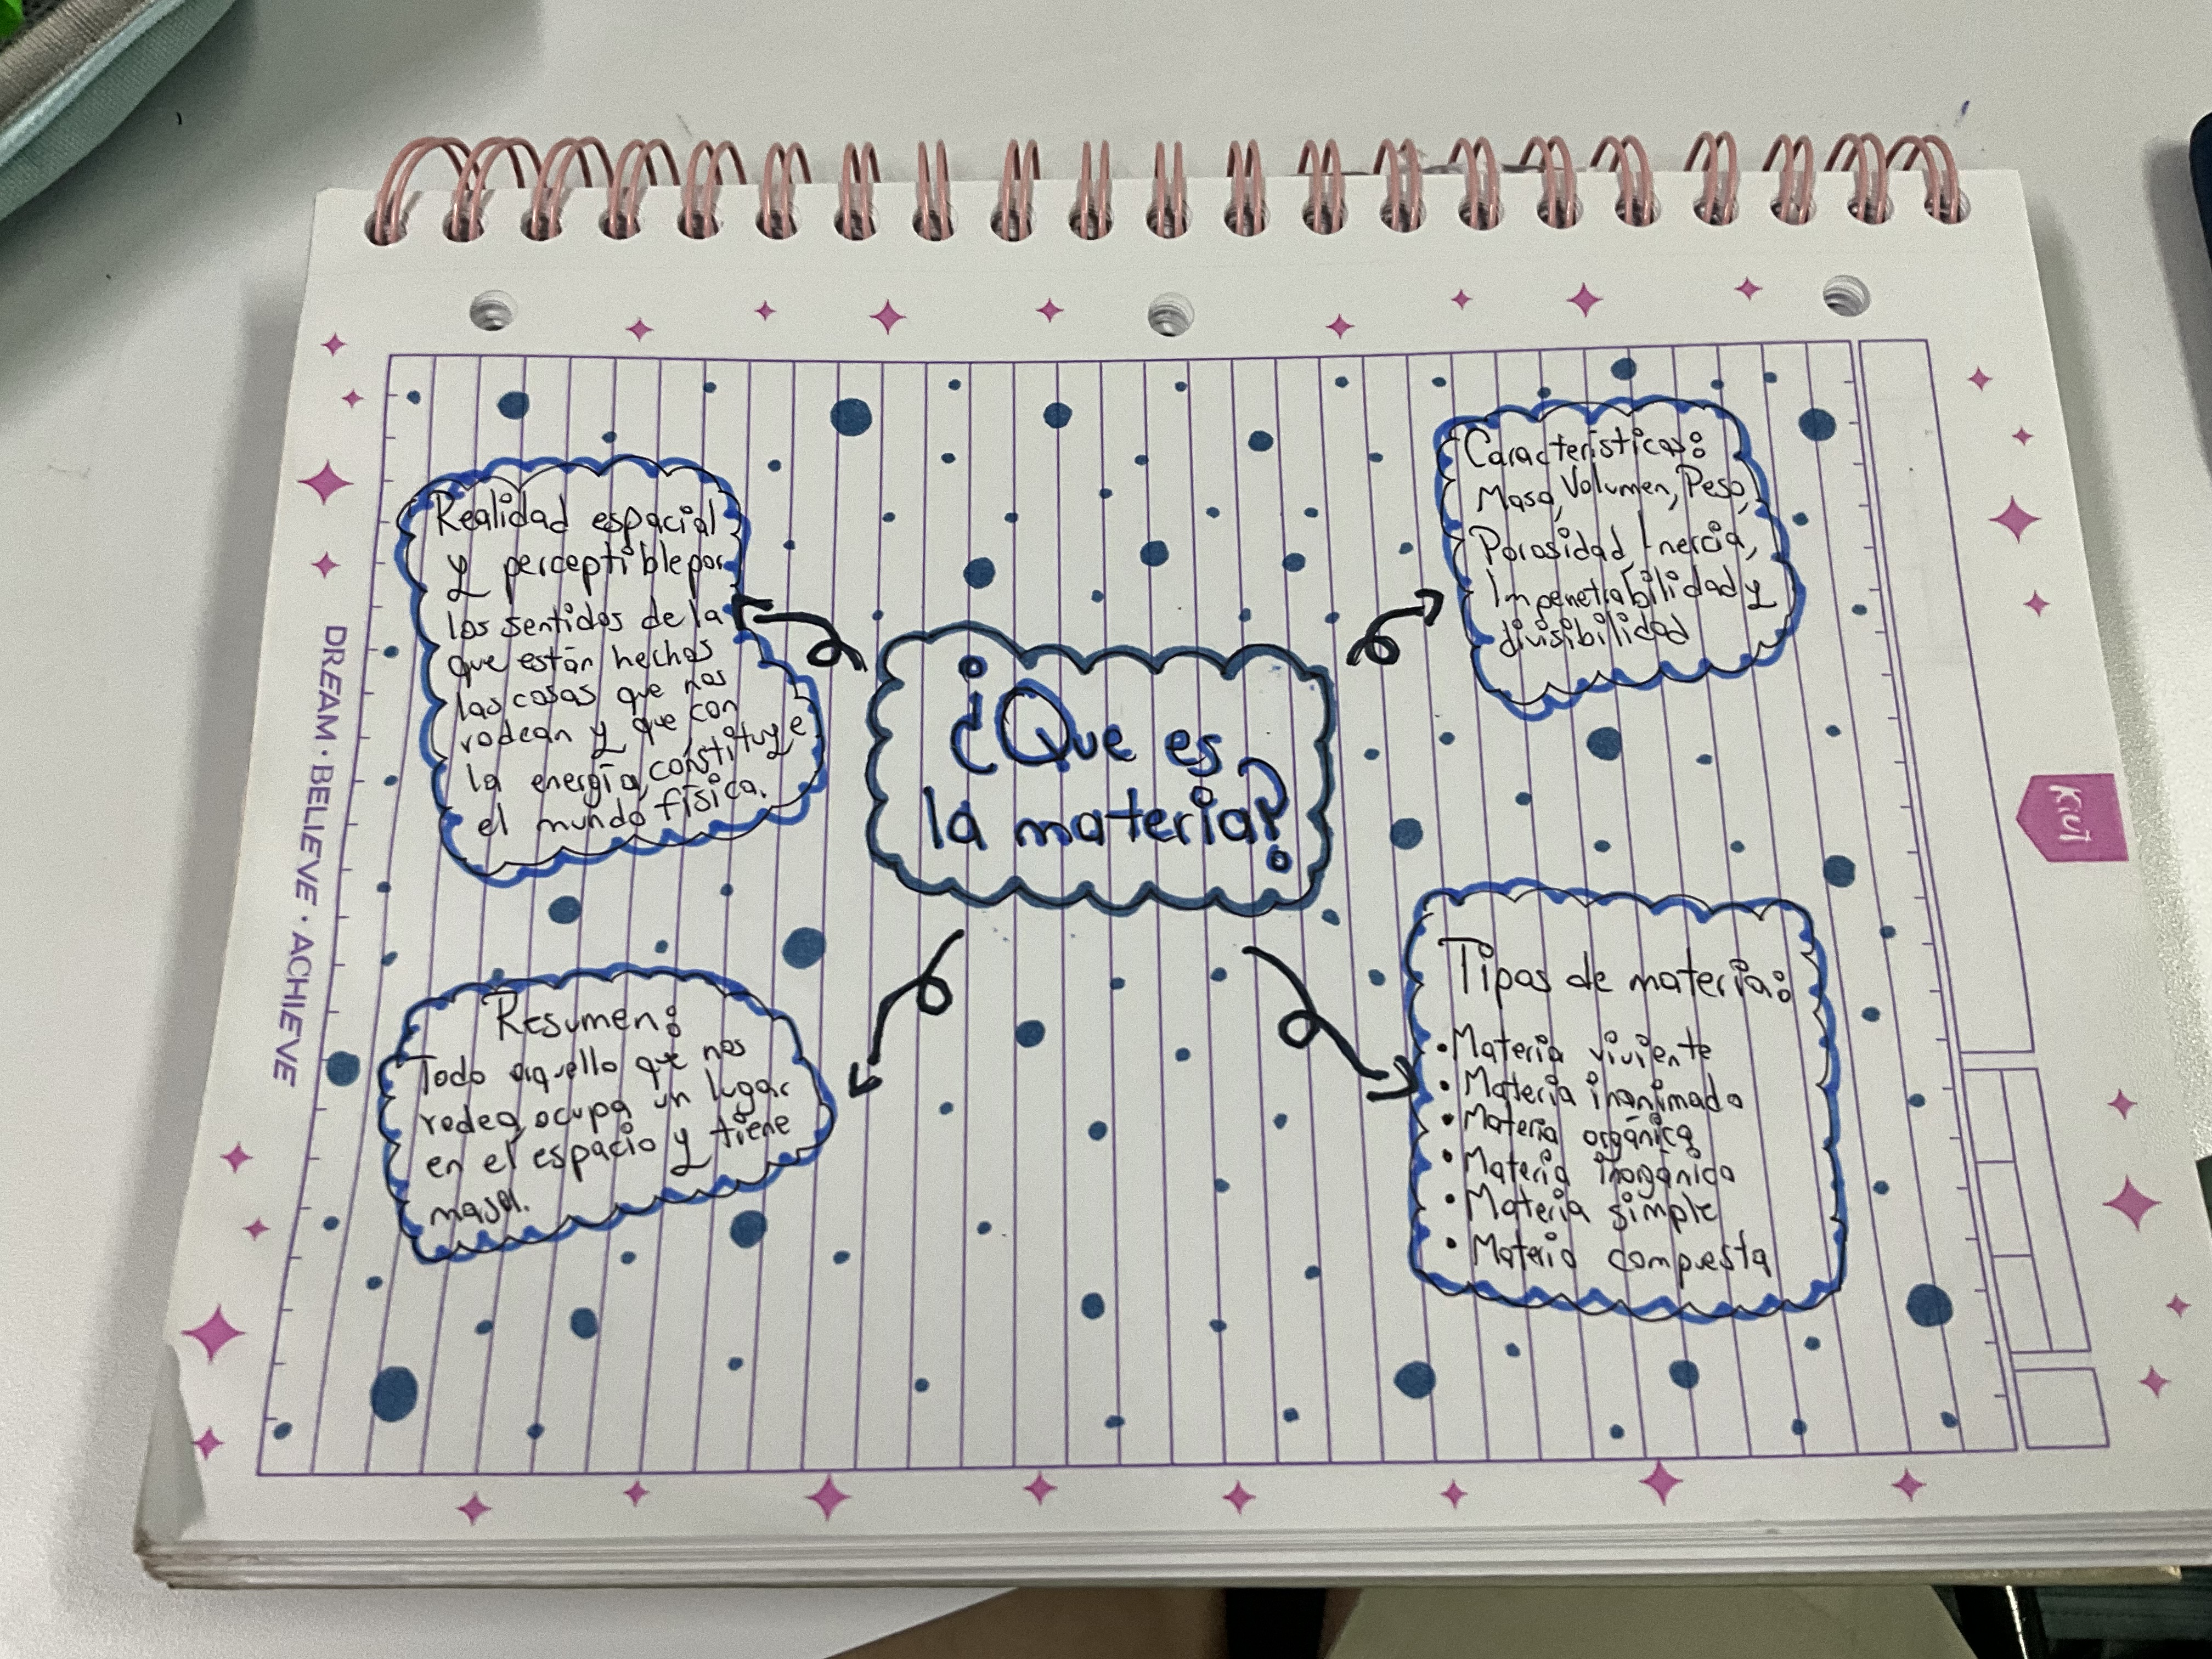 ¿Que es
la materia?
Realidad espacial
y perceptible por
los sentidos de la
que están hechas
las cosas que nos
rodean y que con
la energía, constituye
el mundo física.
Características:
Masa, Volumen, Peso,
Porosidad, Inercia,
Impenetrabilidad y
divisibilidad
Resumen:
Todo aquello que nos
rodea, ocupa un lugar
en el espacio y tiene
masa.
Tipos de materia:
• Materia viviente
• Materia inanimada
• Materia orgánica
• Materia inorgánica
• Materia simple
• Materia compuesta
DREAM · BELIEVE · ACHIEVE
Kiut